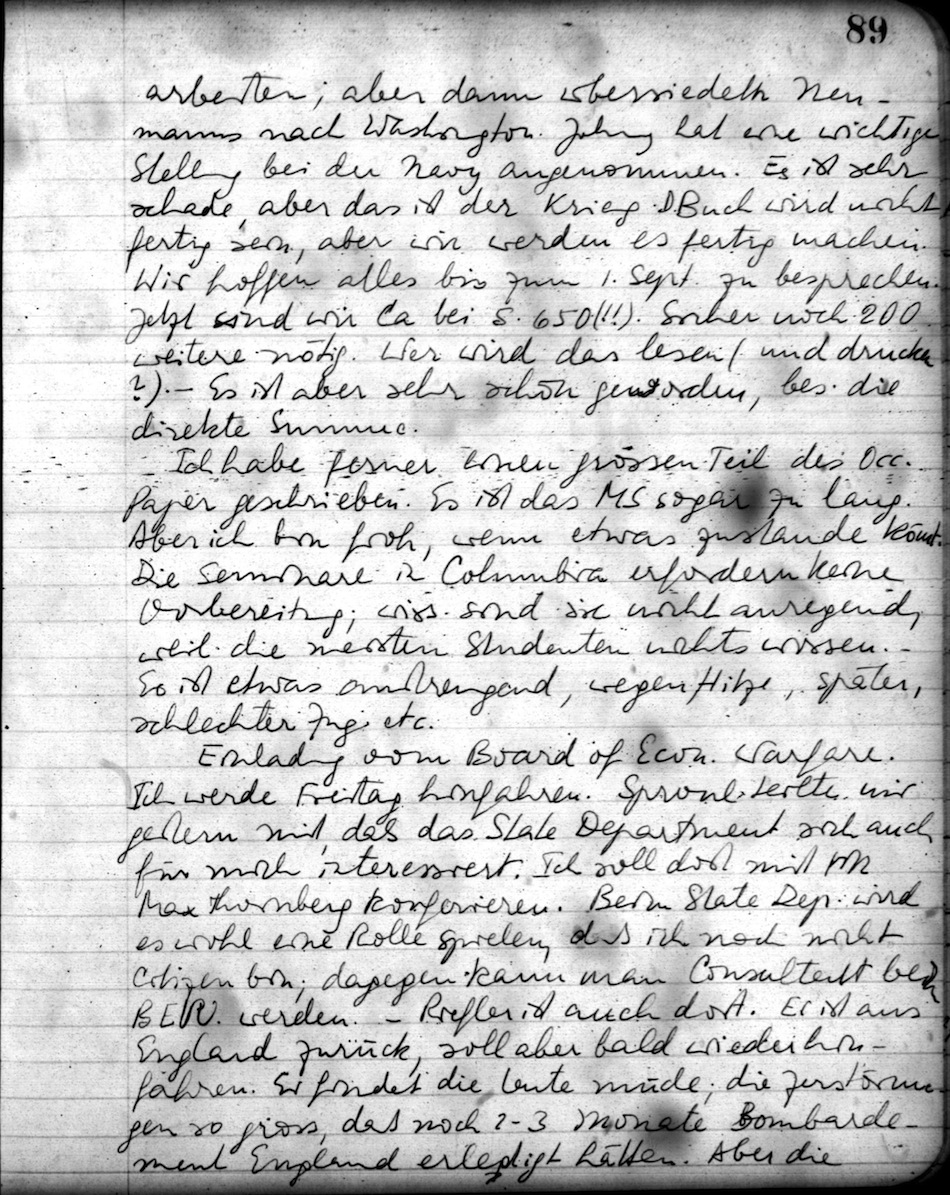 89
arbeiten; aber dann übersiedeln Neu-
manns nach Washington. Johnny hat eine wichtige
Stellung bei der Navy angenommen. Es ist sehr
schade, aber das ist der Krieg. D Buch wird nicht
fertig sein, aber wir werden es fertig machen.
Wir hoffen alles bis zum 1. Sept. zu besprechen.
Jetzt sind wir ca bei S. 650(!!). Sicher noch 200
weitere nötig. Wer wird das lesen (und drucken
?). – Es ist aber sehr schön geworden, bes. die
direkte Summe.
Ich habe ferner einen grossen Teil des Occ.
Paper geschrieben. Es ist das MS sogar zu lang.
Aber ich bin froh, wenn etwas zustande kömt.
Die Seminare in Columbia erfordern keine
Vorbereitung; wiss. sind sie nicht anregend,
weil die meisten Studenten nichts wissen. –
Es ist etwas anstrengend, wegen Hitze, später,
schlechter Zug etc.
Einladung vom Board of Econ. Warfare.
Ich werde Freitag hinfahren. Sproul teilte mir
gestern mit, daß das State Department sich auch
für mich interessiert. Ich soll dort mit Mr
Max Thornberg konferieren. Beim State Dep. wird
es wohl eine Rolle spielen, daß ich noch nicht
Citizen bin; dagegen kann man Consultant bei
BEW. werden. – Riefler ist auch dort. Er ist aus
England zurück, soll aber bald wieder hin-
fahren. Er findet die Leute müde; die Zerstörun-
gen so gross, daß noch 2-3 Monate Bombarde-
ment England erledigt hätten. Aber die